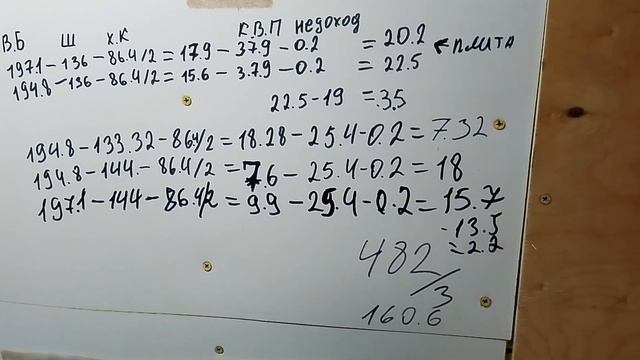 В.Б Ш Х.К К.В.П недоход
197.1 - 136 - 86.4/2 = 17.9 - 37.9 - 0.2 = 20.2 ← плита
194.8 - 136 - 86.4/2 = 15.6 - 3.7.9 - 0.2 = 22.5
22.5 - 19 = 3.5
194.8 - 133.32 - 86.4/2 = 18.28 - 25.4 - 0.2 = 7.32
194.8 - 144. - 86.4/2 = 7.6 - 25.4 - 0.2 = 18
197.1 - 144 - 86.4/2 = 9.9 - 25.4 - 0.2 = 15.7
- 13.5
= 2.2
482/3
160.6